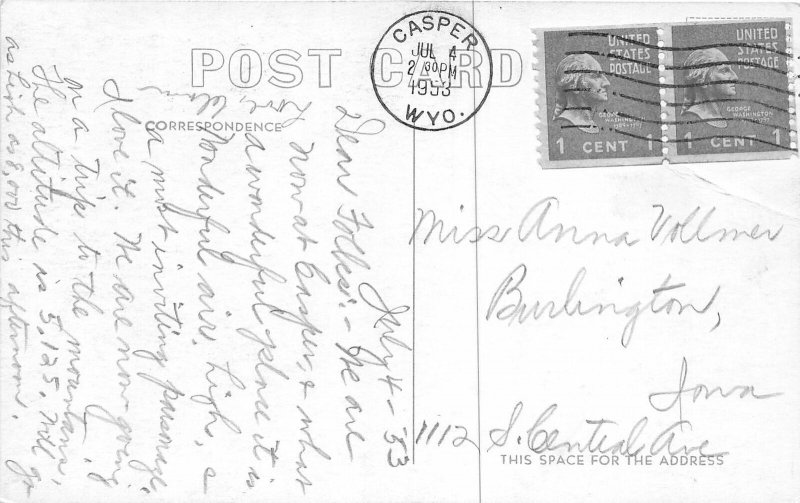 POST CARD
CASPER
JUL 4
2 30PM
1953
WYO.
UNITED
STATES
POSTAGE
GEORGE
WASHINGTON
1 CENT 1
UNITED
STATES
POSTAGE
GEORGE
WASHINGTON
1 CENT 1
CORRESPONDENCE
July 4 - 53
Dear Folks: - We are
now at Casper, & what
a wonderful place it is
Wonderful air, high, &
a most inviting passage.
I love it. We are now going
on a trip to the mountains,
The altitude is 5,125. Will go
as high as 8,000 this afternoon.
Love,
Miss Anna Vollmer
Burlington,
Iowa
1112 S. Central Ave
THIS SPACE FOR THE ADDRESS